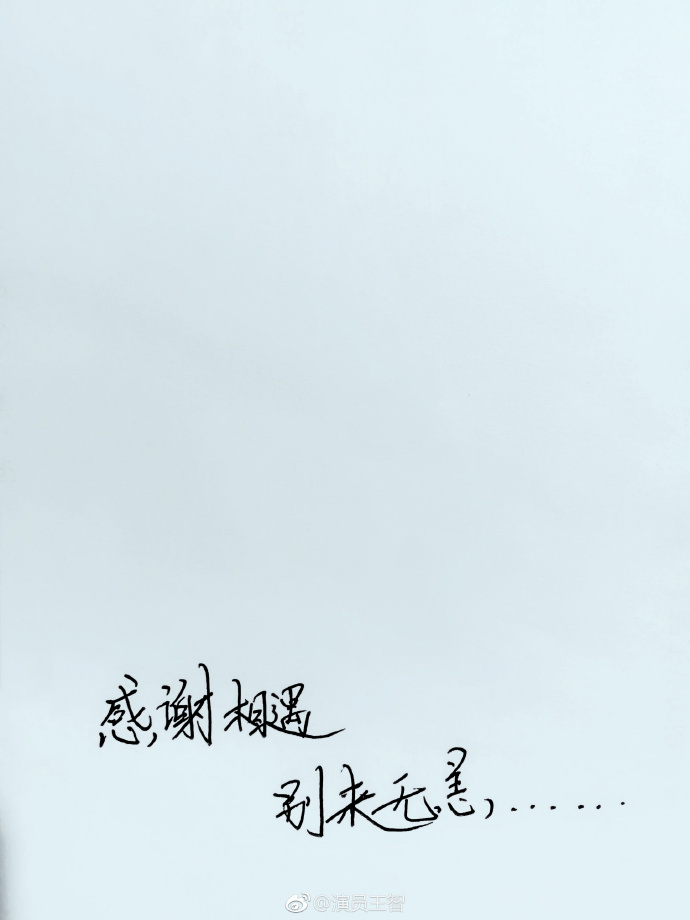 感谢相遇
别来无恙,......
@演员王智